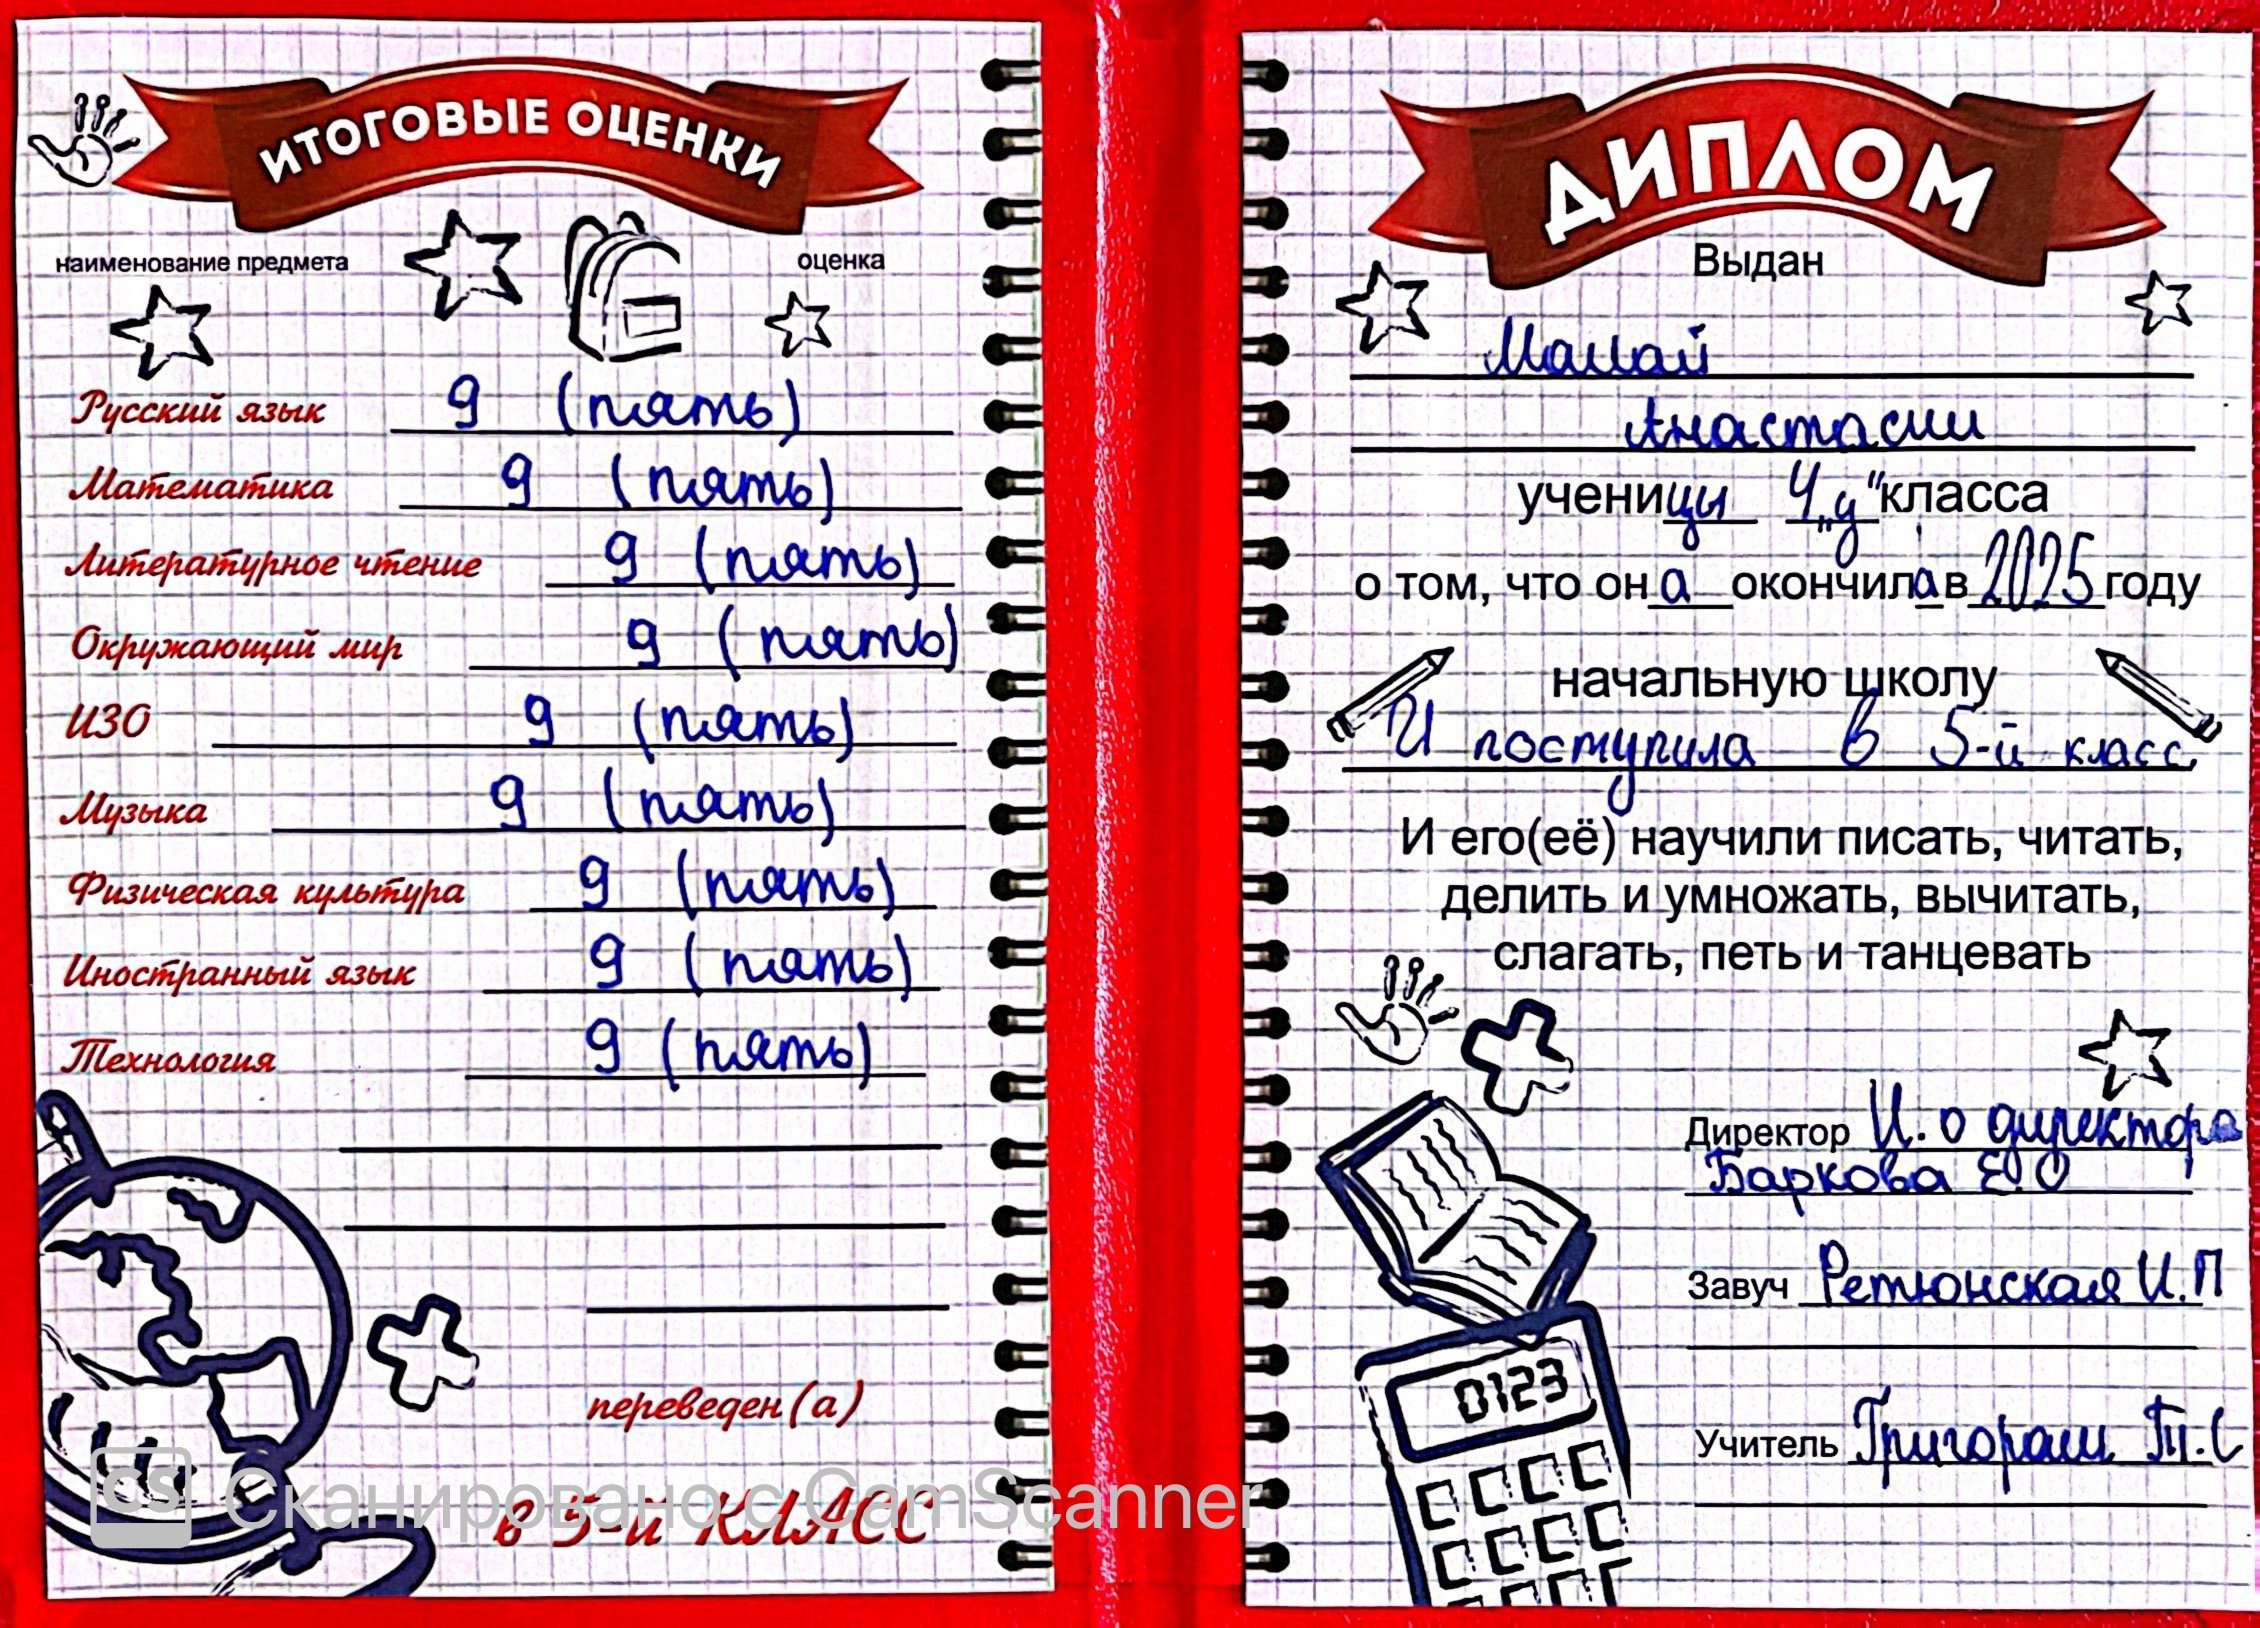 ИТОГОВЫЕ ОЦЕНКИ
наименование предмета оценка
Русский язык 9 (пять)
Математика 9 (пять)
Литературное чтение 9 (пять)
Окружающий мир 9 (пять)
ИЗО 9 (пять)
Музыка 9 (пять)
Физическая культура 9 (пять)
Иностранный язык 9 (пять)
Технология 9 (пять)
переведен(а)
в 5-й КЛАСС
CS Сканировано с CamScanner
ДИПЛОМ
Выдан
Мамай
Анастасии
ученицы 4 „у" класса
о том, что она окончила в 2025 году
начальную школу
И поступила в 5-й класс.
И его(её) научили писать, читать,
делить и умножать, вычитать,
слагать, петь и танцевать
0123
Директор И. о директора
Баркова Е.О
Завуч Ретюнская И.П
Учитель Григораш Т.С